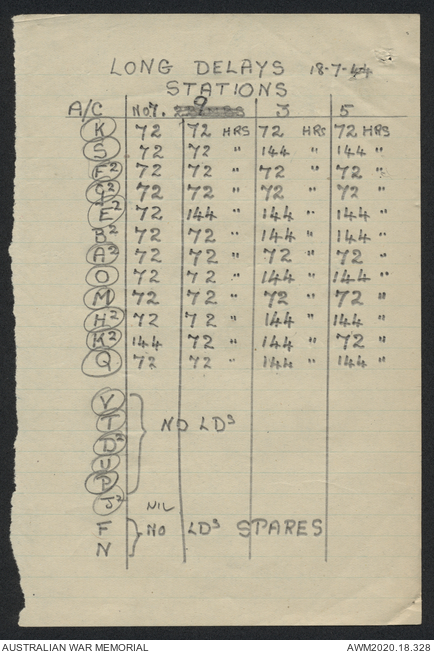 LONG DELAYS 18-7-44
STATIONS
A/C No 7. 9 3 5
K 72 72 HRS 72 HRS 72 HRS
S 72 72 " 144 " 144 "
F² 72 72 " 72 " 72 "
72 72 " 72 " 72 "
E² 72 144 " 144 " 144 "
B² 72 72 " 144 " 144 "
A² 72 72 " 72 " 72 "
O 72 72 " 144 " 144 "
M 72 72 " 72 " 72 "
H² 72 72 " 144 " 144 "
K² 144 72 " 144 " 72 "
Q 72 72 " 144 " 144 "
V
T NO LDˢ
D²
U
P
J² NIL
F NO LDˢ SPARES
N
AUSTRALIAN WAR MEMORIAL AWM2020.18.328